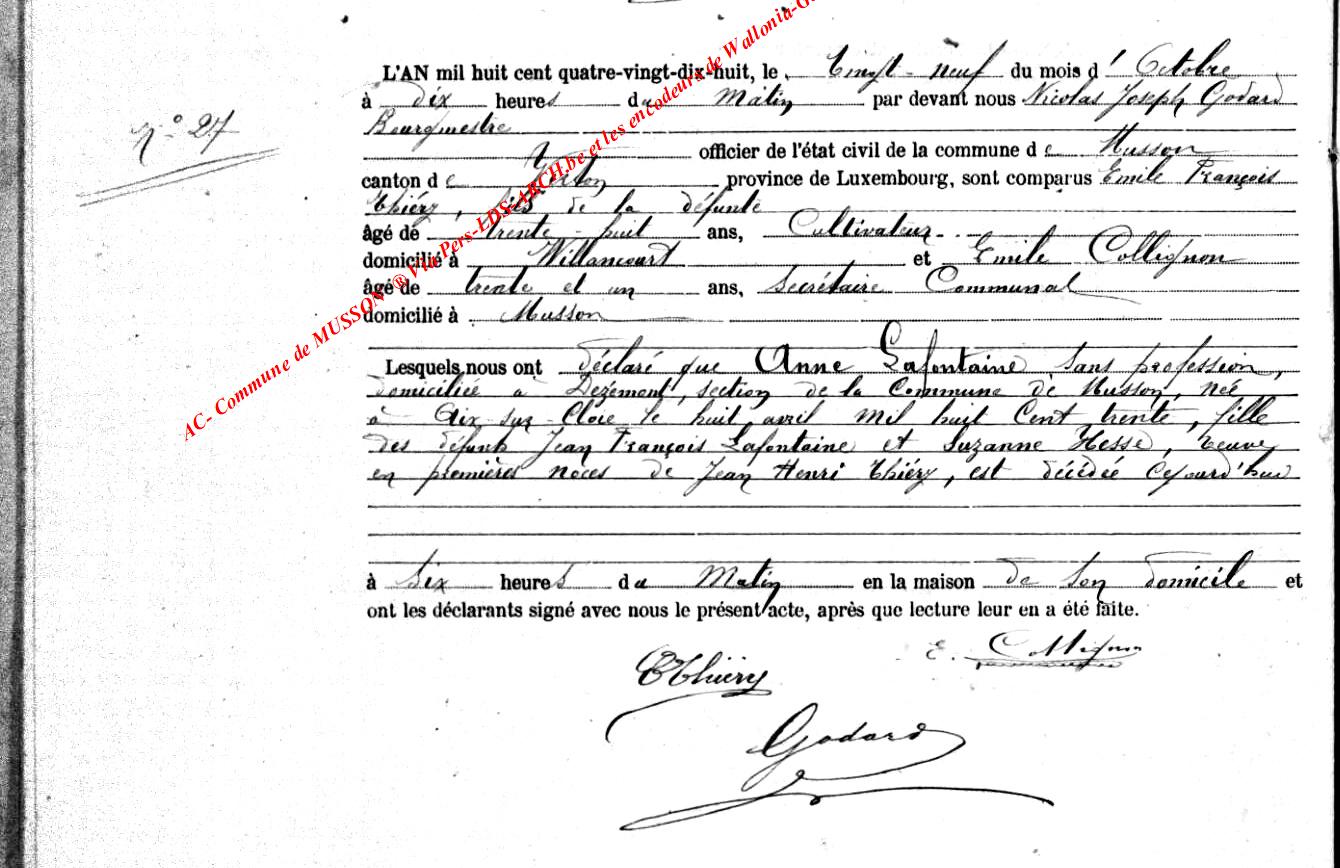 AC- Commune de MUSSON ® Via Pers-LDS-ARCH.be et les encodeurs de Wallonia-G
L'AN mil huit cent quatre-vingt-dix-huit, le Vingt-neuf du mois d' Octobre
à dix heures du Matin par devant nous Nicolas Joseph Godard
Bourgmestre
n° 27
officier de l'état civil de la commune de Musson
canton de Virton province de Luxembourg, sont comparus Emile François
Thiéry, fils de la défunte
âgé de trente-huit ans, Cultivateur
domicilié à Willancourt et Emile Collignon
âgé de trente et un ans, Secrétaire Communal
domicilié à Musson
Lesquels nous ont déclaré que Anne Lafontaine sans profession,
domiciliée à section de la Commune de Musson, née
à Aix sur Cloie le huit avril mil huit Cent trente, fille
des défunts Jean François Lafontaine et Suzanne Hesse, Veuve
en premières noces de Jean Henri Thiéry, est décédée Cejourd'hui
à Six heures du Matin en la maison de son domicile et
ont les déclarants signé avec nous le présent acte, après que lecture leur en a été faite.
E. Collignon
EThiéry
Godard